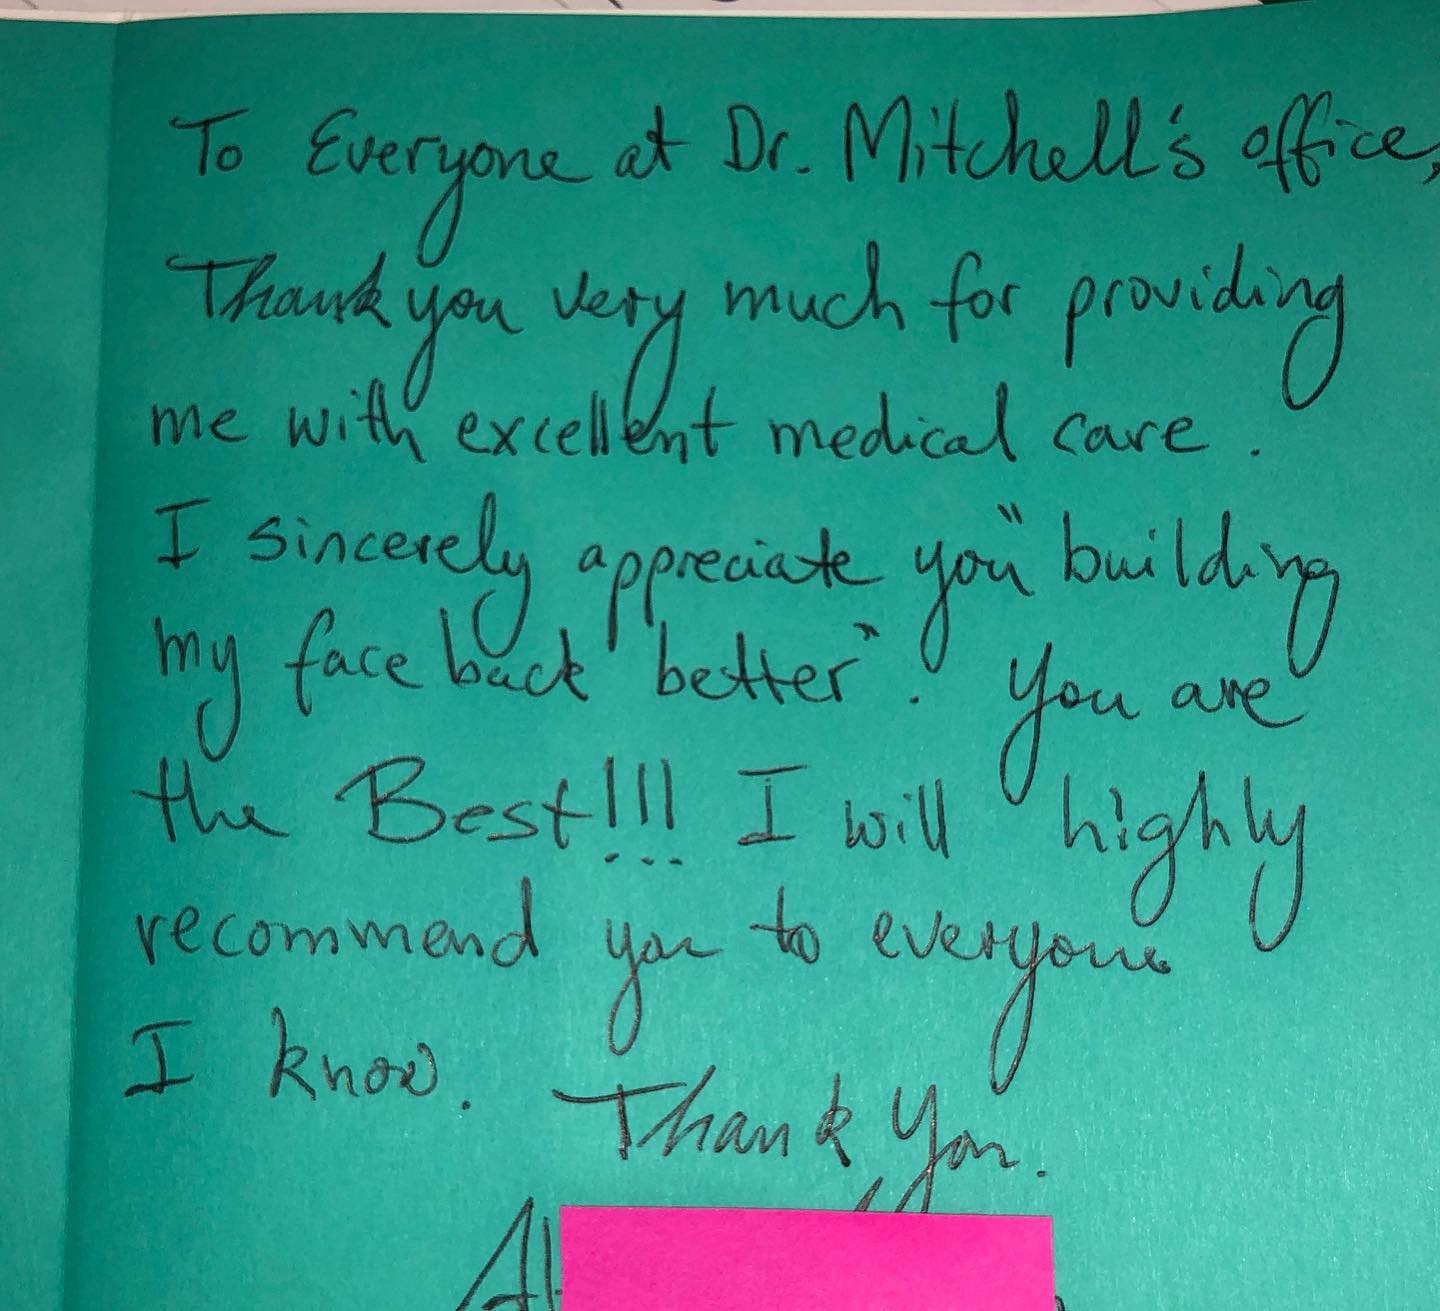 To Everyone at Dr. Mitchell's office,
Thank you very much for providing
me with excellent medical care.
I sincerely appreciate you "building
my face back better". You are
the Best!!! I will highly
recommend you to everyone
I know. Thank you.